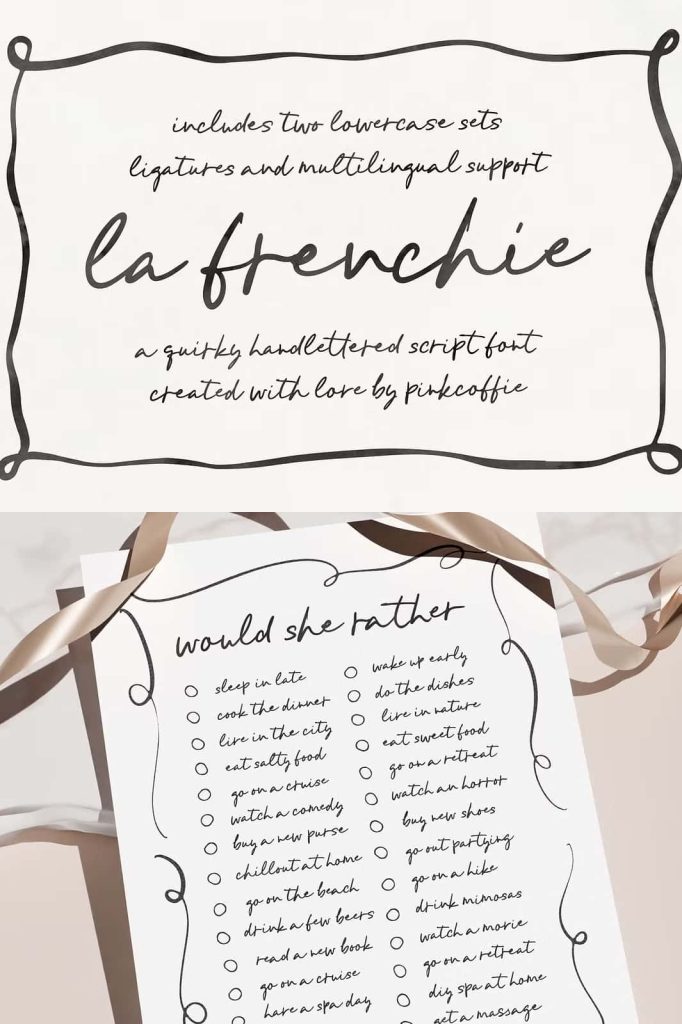 includes two lowercase sets
ligatures and multilingual support
la frenchie
a quirky handlettered script font
created with love by pinkcoffie
would she rather
sleep in late
wake up early
cook the dinner
do the dishes
live in the city
live in nature
eat salty food
eat sweet food
go on a cruise
go on a retreat
watch a comedy
watch an horror
buy a new purse
buy new shoes
chillout at home
go out partying
go on the beach
go on a hike
drink a few beers
drink mimosas
read a new book
watch a movie
go on a cruise
go on a retreat
have a spa day
diy spa at home
get a massage